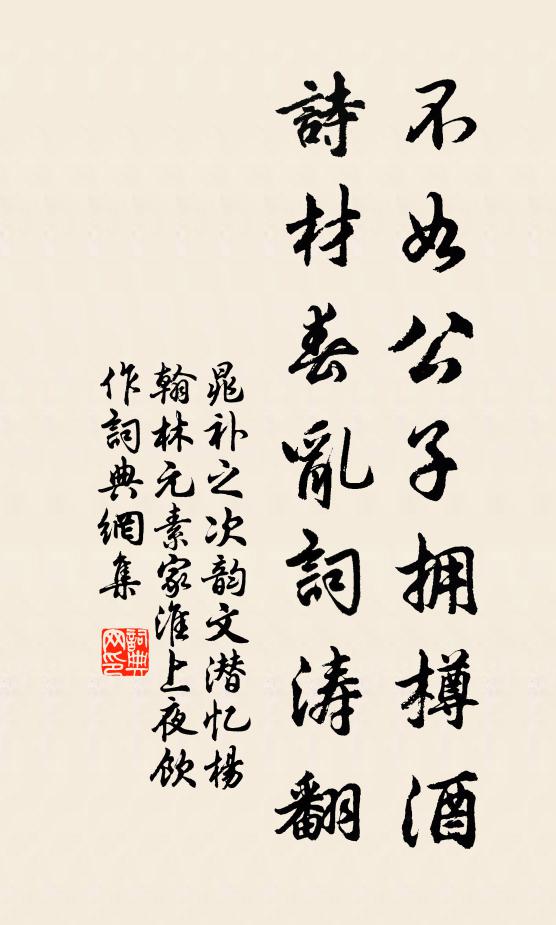 不如公子拥樽酒
詩材春亂詞涛翻
晁补之次韵文潜忆杨
翰林元素家淮上夜飲
作詞典網集
詞典
网印